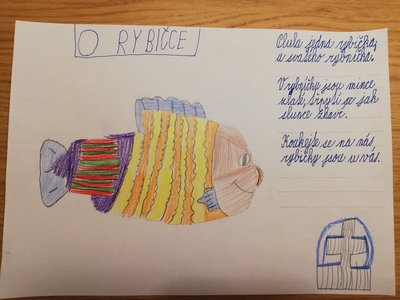 O RYBIČCE
Oluša jedna rybička,
a svašeho rybníčka.
V rybníčky jsou mince
zlaté, třpytí se jak
slunce žhavé.
Koukejte se na nás,
rybičky jsou u vás.